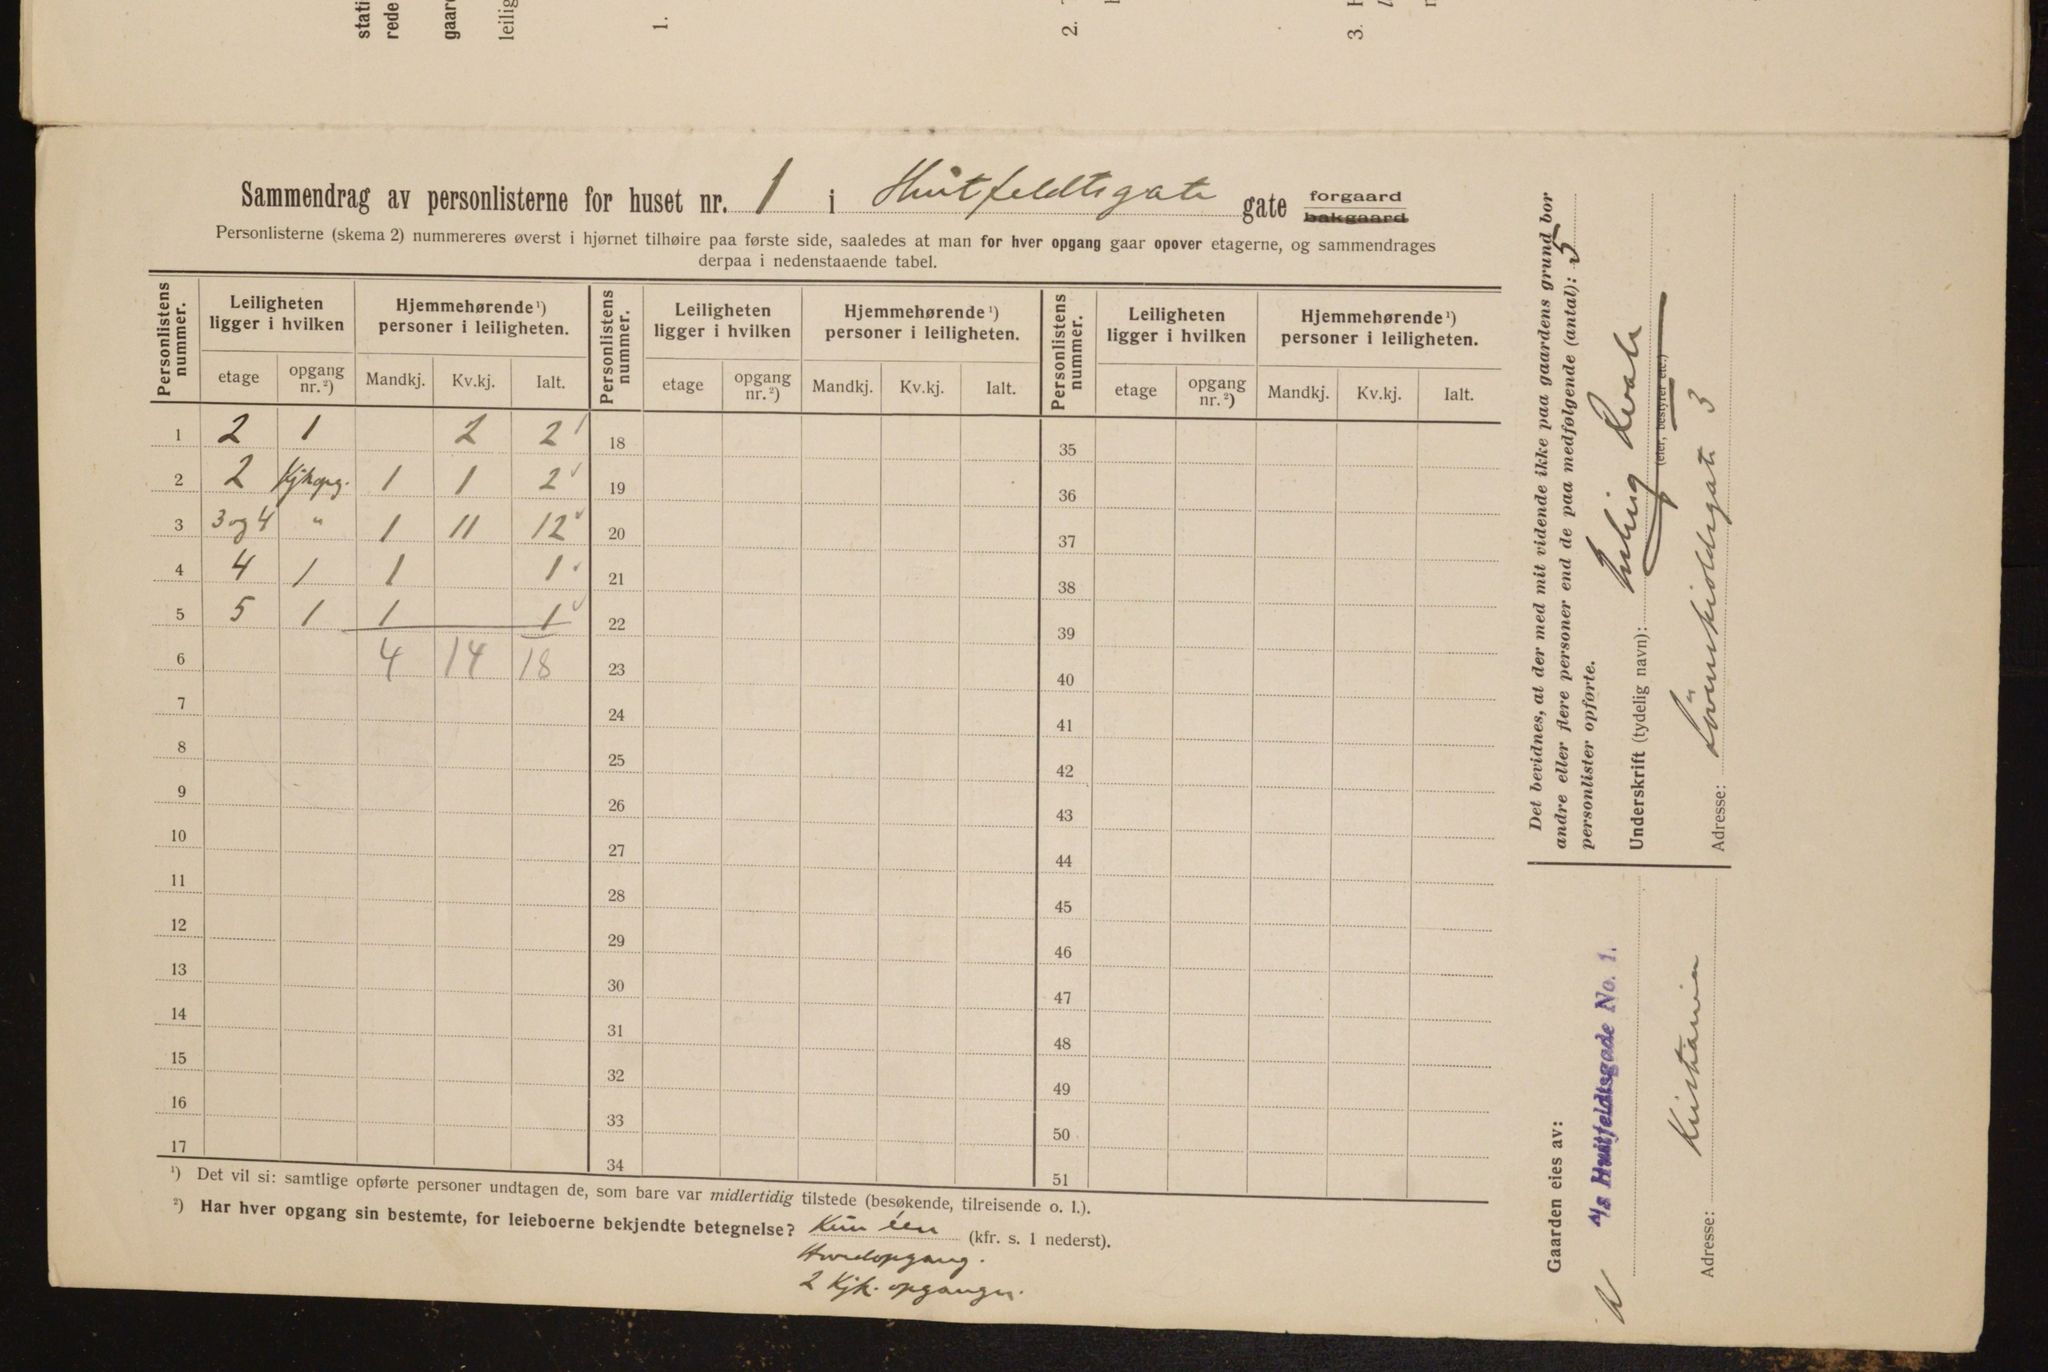 stati
rede
gaard
leilig
1.
2.
3.
Sammendrag av personlisterne for huset nr. 1 i Huitfeldtsgate gate forgaard bakgaard
Personlisterne (skema 2) nummereres øverst i hjørnet tilhøire paa første side, saaledes at man for hver opgang gaar opover etagerne, og sammendrages
derpaa i nedenstaaende tabel.
Personlistens nummer. Leiligheten ligger i hvilken Hjemmehørende ¹) personer i leiligheten. Personlistens nummer. Leiligheten ligger i hvilken Hjemmehørende ¹) personer i leiligheten. Personlistens nummer. Leiligheten ligger i hvilken Hjemmehørende ¹) personer i leiligheten.
etage opgang nr. ²) Mandkj. Kv.kj. Ialt. etage opgang nr. ²) Mandkj. Kv.kj. Ialt. etage opgang nr. ²) Mandkj. Kv.kj. Ialt.
1 2 1 2 2 18 35
2 2 Kjkopg. 1 1 2 19 36
3 3 og 4 " 1 11 12 20 37
4 4 1 1 1 21 38
5 5 1 1 1 22 39
6 4 14 18 23 40
7 24 41
8 25 42
9 26 43
10 27 44
11 28 45
12 29 46
13 30 47
14 31 48
15 32 49
16 33 50
17 34 51
¹) Det vil si: samtlige opførte personer undtagen de, som bare var midlertidig tilstede (besøkende, tilreisende o. l.).
²) Har hver opgang sin bestemte, for leieboerne bekjendte betegnelse? Kun én (kfr. s. 1 nederst).
Hovedopgang.
2 Kjk. opganger.
Det bevidnes, at der med mit vidende ikke paa gaardens grund bor
andre eller flere personer end de paa medfølgende (antal): 5
personlister opførte.
Underskrift (tydelig navn):
(eier, bestyrer etc.)
Adresse: Lövenskioldsgate 3
Gaarden eies av:
A/s Huitfeldtsgade No. 1.
Adresse: Kristiania